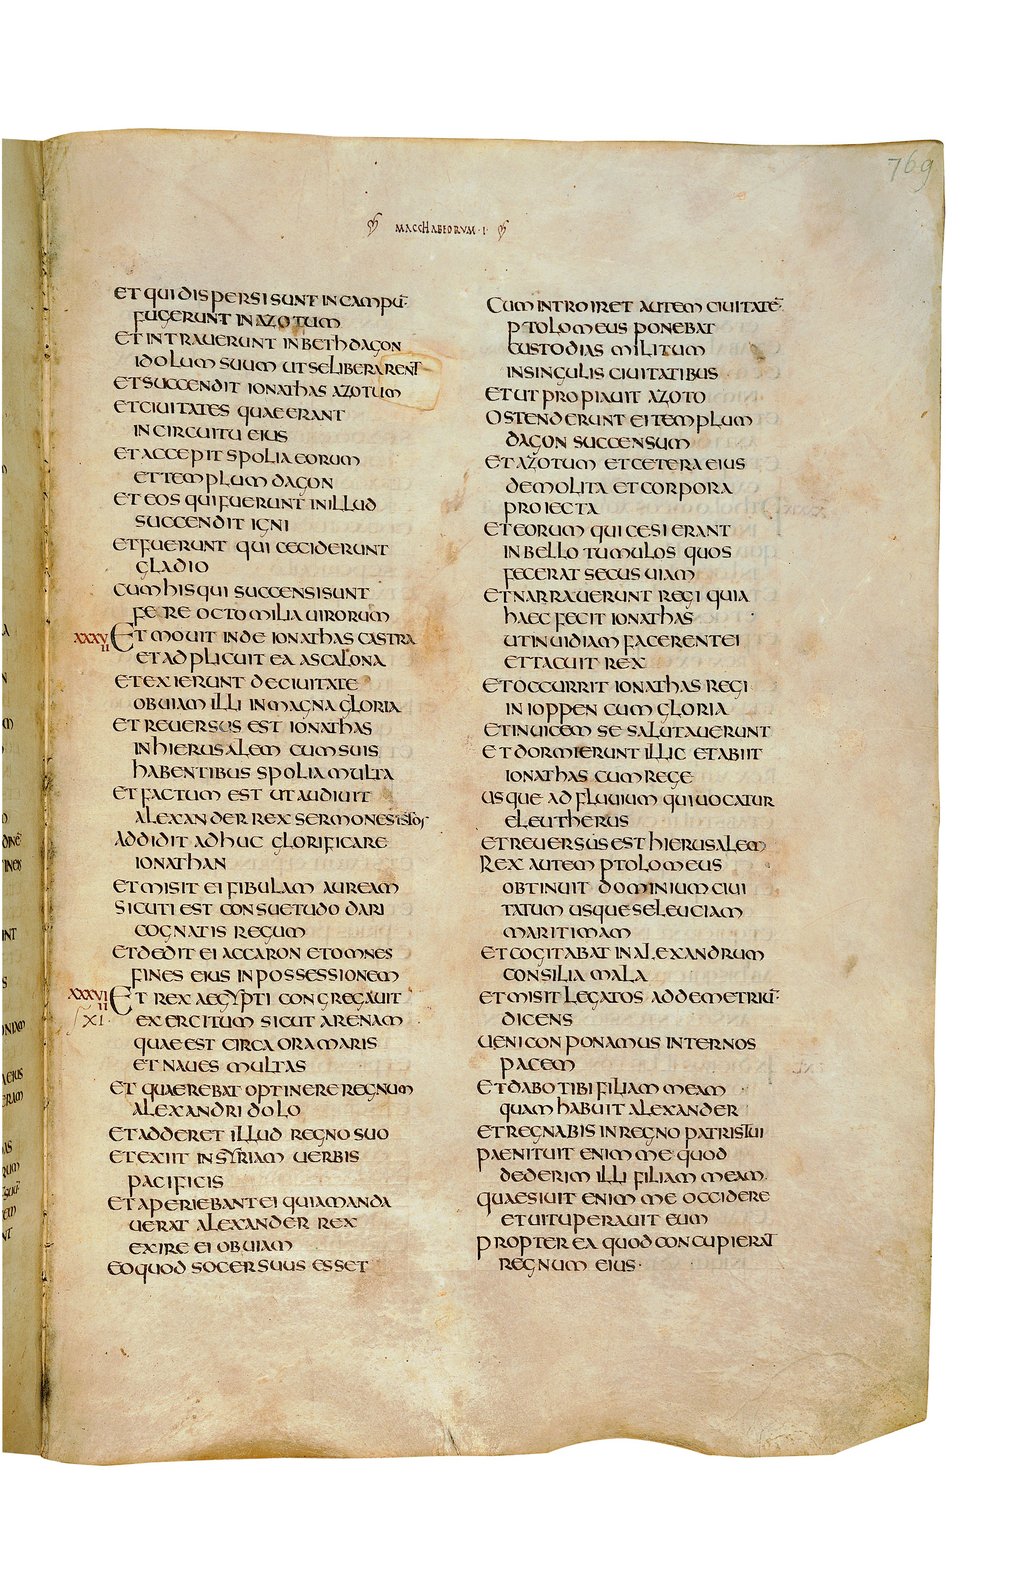 769
MACCHABEORUM · I ·
ET QUI DISPERSI SUNT IN CAMPŪ
FUGERUNT IN AZOTUM
ET INTRAUERUNT IN BETHDAGON
IDOLUM SUUM UT SE LIBERARENT
ET SUCCENDIT IONATHAS AZOTUM
ET CIUITATES QUAE ERANT
IN CIRCUITU EIUS
ET ACCEPIT SPOLIA EORUM
ET TEMPLUM DAGON
ET EOS QUI FUERUNT IN ILLUD
SUCCENDIT IGNI
ET FUERUNT QUI CECIDERUNT
GLADIO
CUM HIS QUI SUCCENSI SUNT
FERE OCTO MILIA UIRORUM
XXXVII ET MOUIT INDE IONATHAS CASTRA
ET ADPLICUIT EA ASCALONA
ET EXIERUNT DE CIUITATE
OBUIAM ILLI IN MAGNA GLORIA
ET REUERSUS EST IONATHAS
IN HIERUSALEM CUM SUIS
HABENTIBUS SPOLIA MULTA
ET FACTUM EST UT AUDIUIT
ALEXANDER REX SERMONES ISTOS
ADDIDIT ADHUC GLORIFICARE
IONATHAN
ET MISIT EI FIBULAM AUREAM
SICUTI EST CONSUETUDO DARI
COGNATIS REGUM
ET DEDIT EI ACCARON ET OMNES
FINES EIUS IN POSSESSIONEM
XXXVIII ET REX AEGYPTI CONGREGAUIT
XI · EXERCITUM SICUT ARENAM
QUAE EST CIRCA ORA MARIS
ET NAUES MULTAS
ET QUAEREBAT OPTINERE REGNUM
ALEXANDRI DOLO
ET ADDERET ILLUD REGNO SUO
ET EXIIT IN SYRIAM UERBIS
PACIFICIS
ET APERIEBANT EI QUIA MANDA
UERAT ALEXANDER REX
EXIRE EI OBUIAM
EO QUOD SOCER SUUS ESSET
CUM INTROIRET AUTEM CIUITATĒ
PTOLOMEUS PONEBAT
CUSTODIAS MILITUM
IN SINGULIS CIUITATIBUS
ET UT PROPIAUIT AZOTO
OSTENDERUNT EI TEMPLUM
DAGON SUCCENSUM
ET AZOTUM ET CETERA EIUS
DEMOLITA ET CORPORA
PROIECTA
ET EORUM QUI CESI ERANT
IN BELLO TUMULOS QUOS
FECERAT SECUS UIAM
ET NARRAUERUNT REGI QUIA
HAEC FECIT IONATHAS
UT INUIDIAM FACERENT EI
ET TACUIT REX
ET OCCURRIT IONATHAS REGI
IN IOPPEN CUM GLORIA
ET INUICEM SE SALUTAUERUNT
ET DORMIERUNT ILLIC ET ABIIT
IONATHAS CUM REGE
USQUE AD FLUUIUM QUI UOCATUR
ELEUTHERUS
ET REUERSUS EST HIERUSALEM
REX AUTEM PTOLOMEUS
OBTINUIT DOMINIUM CIUI
TATUM USQUE SELEUCIAM
MARITIMAM
ET COGITABAT IN ALEXANDRUM
CONSILIA MALA
ET MISIT LEGATOS AD DEMETRIŪ
DICENS
UENI CONPONAMUS INTER NOS
PACEM
ET DABO TIBI FILIAM MEAM
QUAM HABUIT ALEXANDER
ET REGNABIS IN REGNO PATRIS TUI
PAENITUIT ENIM ME QUOD
DEDERIM ILLI FILIAM MEAM
QUAESIUIT ENIM ME OCCIDERE
ET UITUPERAUIT EUM
PROPTEREA QUOD CONCUPIERAT
REGNUM EIUS ·